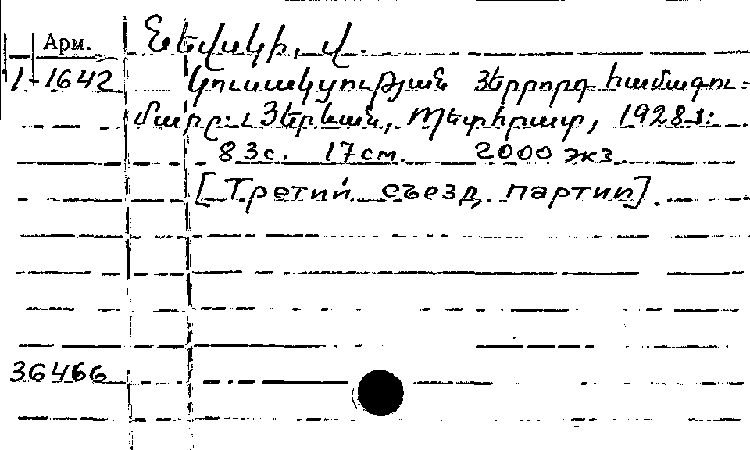 Арм. Նեվսկի, Վ.
1-1642 Կուսակցության Յերրորդ համագու-
մարը։ Յերևան, Պետհրատ, 1928 թ։
83с. 17см. 2000 экз.
[Третий съезд партии].
36466